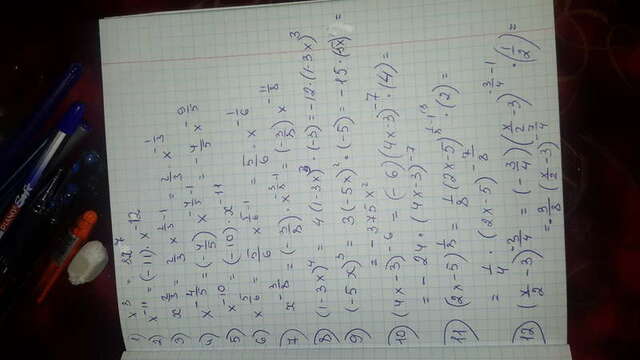 1) x³ = 3x²
2) x⁻¹¹ = (-11) · x⁻¹²
3) x^(2/3) = 2/3 x^(2/3 - 1) = 2/3 x^(-1/3)
4) x^(-4/5) = (-4/5) x^(-4/5 - 1) = -4/5 x^(-9/5)
5) x⁻¹⁰ = (-10) · x⁻¹¹
6) x^(5/6) = 5/6 x^(5/6 - 1) = 5/6 · x^(-1/6)
7) x^(-3/8) = (-3/8) · x^(-3/8 - 1) = (-3/8) x^(-11/8)
8) (1-3x)⁴ = 4(1-3x)³ · (-3) = -12 · (1-3x)³
9) (-5x)³ = 3(-5x)² · (-5) = -15 · =
= -375x²
10) (4x-3)⁻⁶ = (-6)(4x-3)⁻⁷ · (4) =
= -24 · (4x-3)⁻⁷
11) (2x-5)^(1/8) = 1/8 (2x-5) · (2) =
= 1/4 · (2x-5)^(-7/8)
12) (x/2 - 3)^(-3/4) = (-3/4)(x/2 - 3) · (1/2) =
= -3/8 (x/2 - 3)